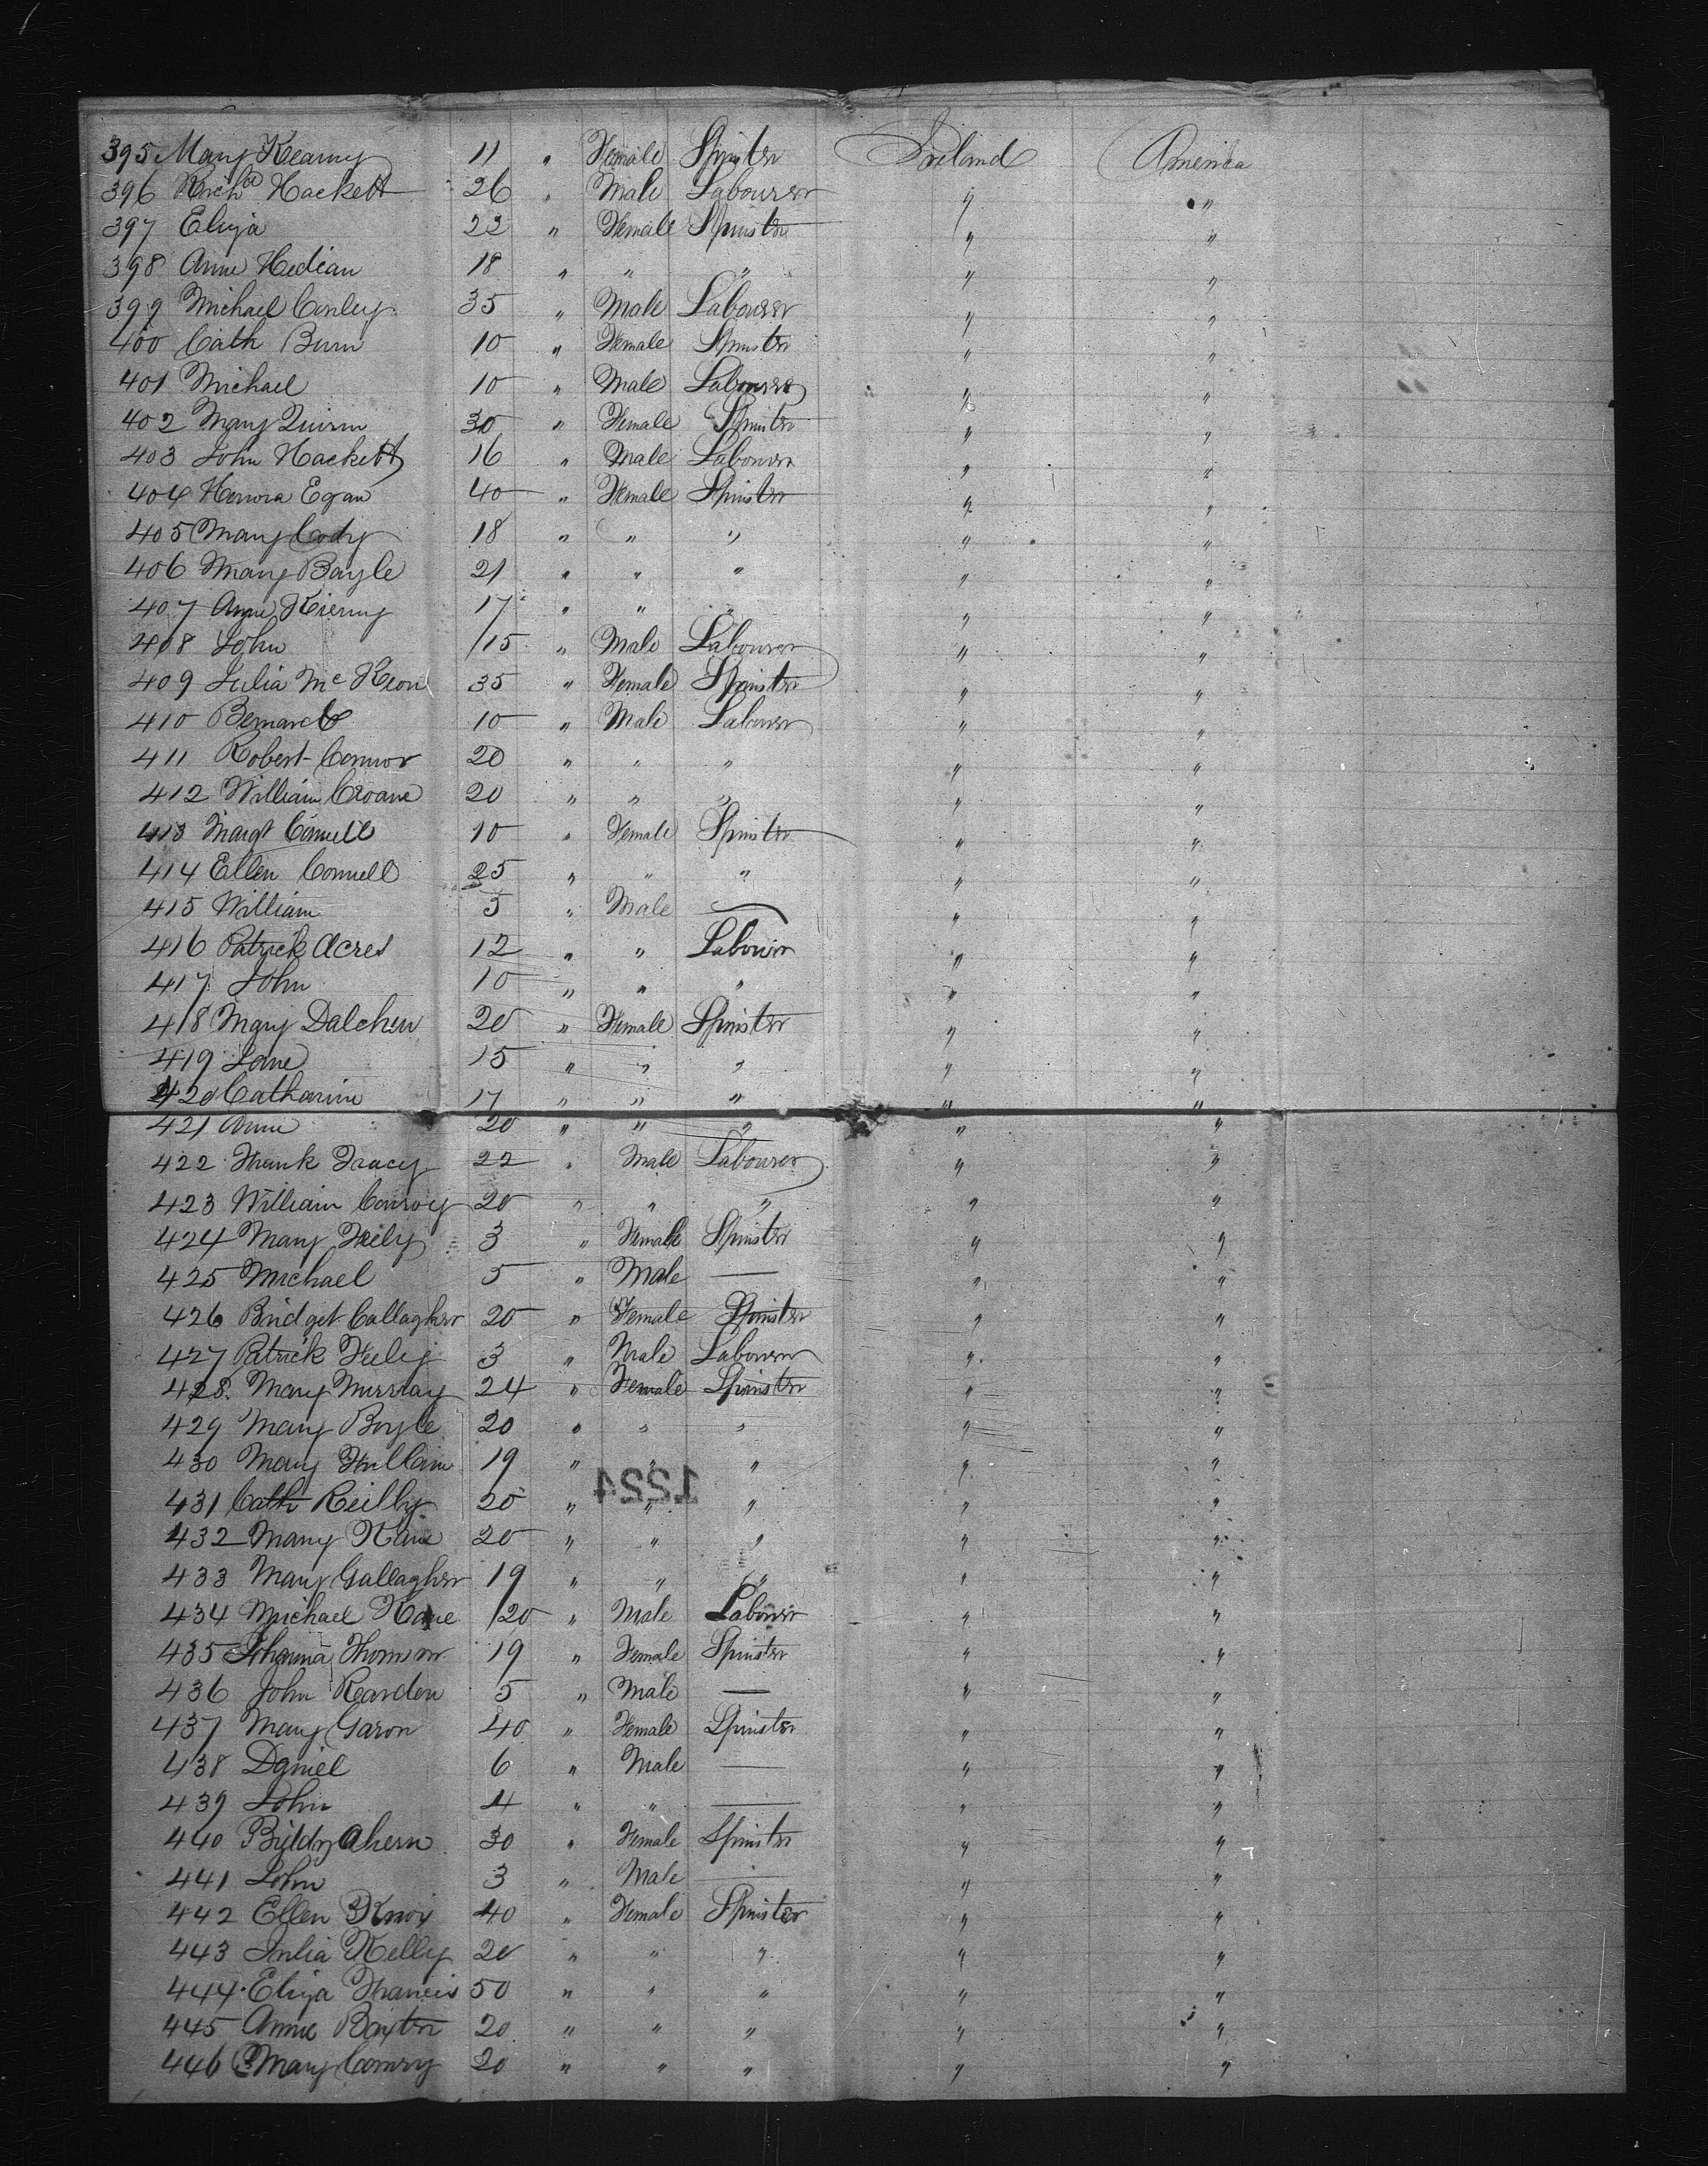 395 Mary Kearny 11 " Female Spinster Ireland America
396 Richd Hackett 26 " Male Labourer " "
397 Eliza 22 " Female Spinster " "
398 Anne Hedian 18 " " " " "
399 Michael Conley 35 " Male Labourer " "
400 Cath Burn 10 " Female Spinster " "
401 Michael 10 " Male Labourer " "
402 Mary Quinn 30 " Female Spinster " "
403 John Hackett 16 " Male Labourer " "
404 Honora Egan 40 " Female Spinster " "
405 Mary Cody 18 " " " " "
406 Mary Bayle 21 " " " " "
407 Anne Kierny 17 " " " " "
408 John 15 " Male Labourer " "
409 Julia Mc Keon 35 " Female Spinster " "
410 Bernard 10 " Male Labourer " "
411 Robert Connor 20 " " " " "
412 William Croane 20 " " " " "
413 Margt Connell 10 " Female Spinster " "
414 Ellen Connell 25 " " " " "
415 William 5 " Male — " "
416 Patrick Acres 12 " " Labourer " "
417 John 10 " " " " "
418 Mary Dalchen 20 " Female Spinster " "
419 Jane 15 " " " " "
420 Catharine 17 " " " " "
421 Anne 20 " " " " "
422 Frank Tracey 22 " Male Labourer " "
423 William Conroy 20 " " " " "
424 Mary Feely 3 " Female Spinster " "
425 Michael 5 " Male — " "
426 Bridget Callagher 20 " Female Spinster " "
427 Patrick Feely 3 " Male Labourer " "
428 Mary Murray 24 " Female Spinster " "
429 Mary Boyle 20 " " " " "
430 Mary 19 " " " " "
1224
431 Cath Reilly 20 " " " " "
432 Mary Kane 20 " " " " "
433 Mary Gallagher 19 " " " " "
434 Michael Kane 20 " Male Labourer " "
435 Johanna 19 " Female Spinster " "
436 John Rearden 5 " Male — " "
437 Mary Garon 40 " Female Spinster " "
438 Daniel 6 " Male — " "
439 John 4 " " — " "
440 Biddy Ahern 30 " Female Spinster " "
441 John 3 " Male — " "
442 Ellen Knox 40 " Female Spinster " "
443 Julia Kelly 20 " " " " "
444 Eliza Francis 50 " " " " "
445 Anne Baxter 20 " " " " "
446 Mary Comry 20 " " " " "